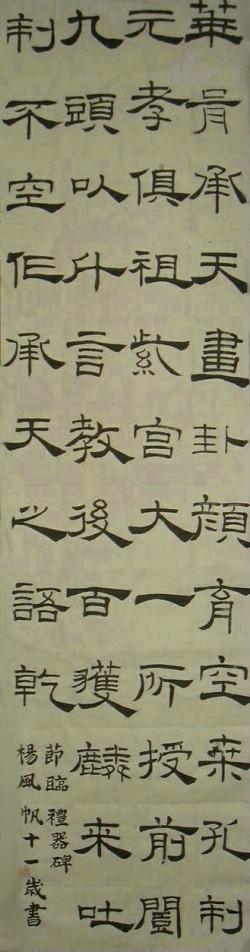 華胥承天畫卦顏育空桑孔制
元孝俱祖紫宮大一所授前闓
九頭以什言教後百獲麟來吐
制不空作承天之語乾
節臨禮器碑
楊風帆十一歲書